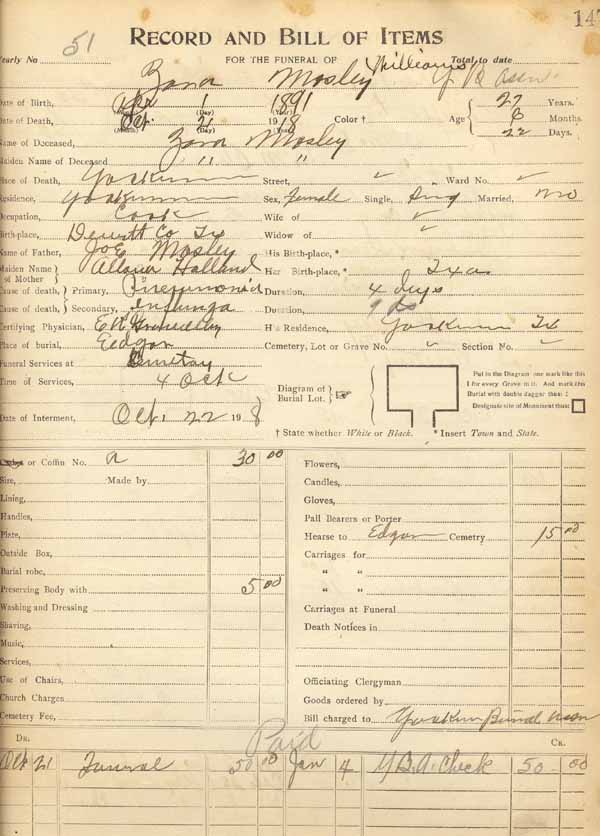 147
Yearly No 51
RECORD AND BILL OF ITEMS
FOR THE FUNERAL OF Williams Total to date
Zora Mosley Y B Assn.
Date of Birth, Apr 1 1891 27 Years.
(Month) (Day) (Year)
Date of Death, Oct. 21 1918 Color † Age 8 Months
(Month) (Day) (Year) 22 Days.
Name of Deceased, Zora Mosley
Maiden Name of Deceased " "
Place of Death, Yoakum Street, Ward No.
Residence, Yoakum Sex, Female Single, Sing Married, no
Occupation, Cook Wife of
Birth-place, Dewitt Co Tx Widow of
Name of Father, Joe Mosley His Birth-place, *
Maiden Name of Mother Holland Her Birth-place, * Txas
Cause of death, Primary, Pneumonia Duration, 4 days
Cause of death, Secondary, Duration, 9 ds
Certifying Physician, His Residence, Yoakum Tx
Place of burial, Eedgar Cemetery, Lot or Grave No. " Section No.
Funeral Services at Cemetay
Time of Services, 4 Ock
Diagram of Burial Lot.
Put in the Diagram one mark like this
I for every Grave in it. And mark this
Burial with double dagger thus: ‡
Designate site of Monument thus:
Date of Interment, Oct. 22 1918
† State whether White or Black. * Insert Town and State.
or Coffin No. a 30 00 Flowers,
Size, Made by Candles,
Lining, Gloves,
Handles, Pall Bearers or Porter
Plate, Hearse to Edgar Cemetry 15 00
Outside Box, Carriages for
Burial robe, " "
Preserving Body with 5 00 " "
Washing and Dressing Carriages at Funeral
Shaving, Death Notices in
Music,
Services,
Use of Chairs, Officiating Clergyman
Church Charges Goods ordered by
Cemetery Fee, Bill charged to Yoakum Burial Assn
DR. Paid CR.
Oct 21 Funeral 50 00 Jan 4 Y.B.A. Check 50 00